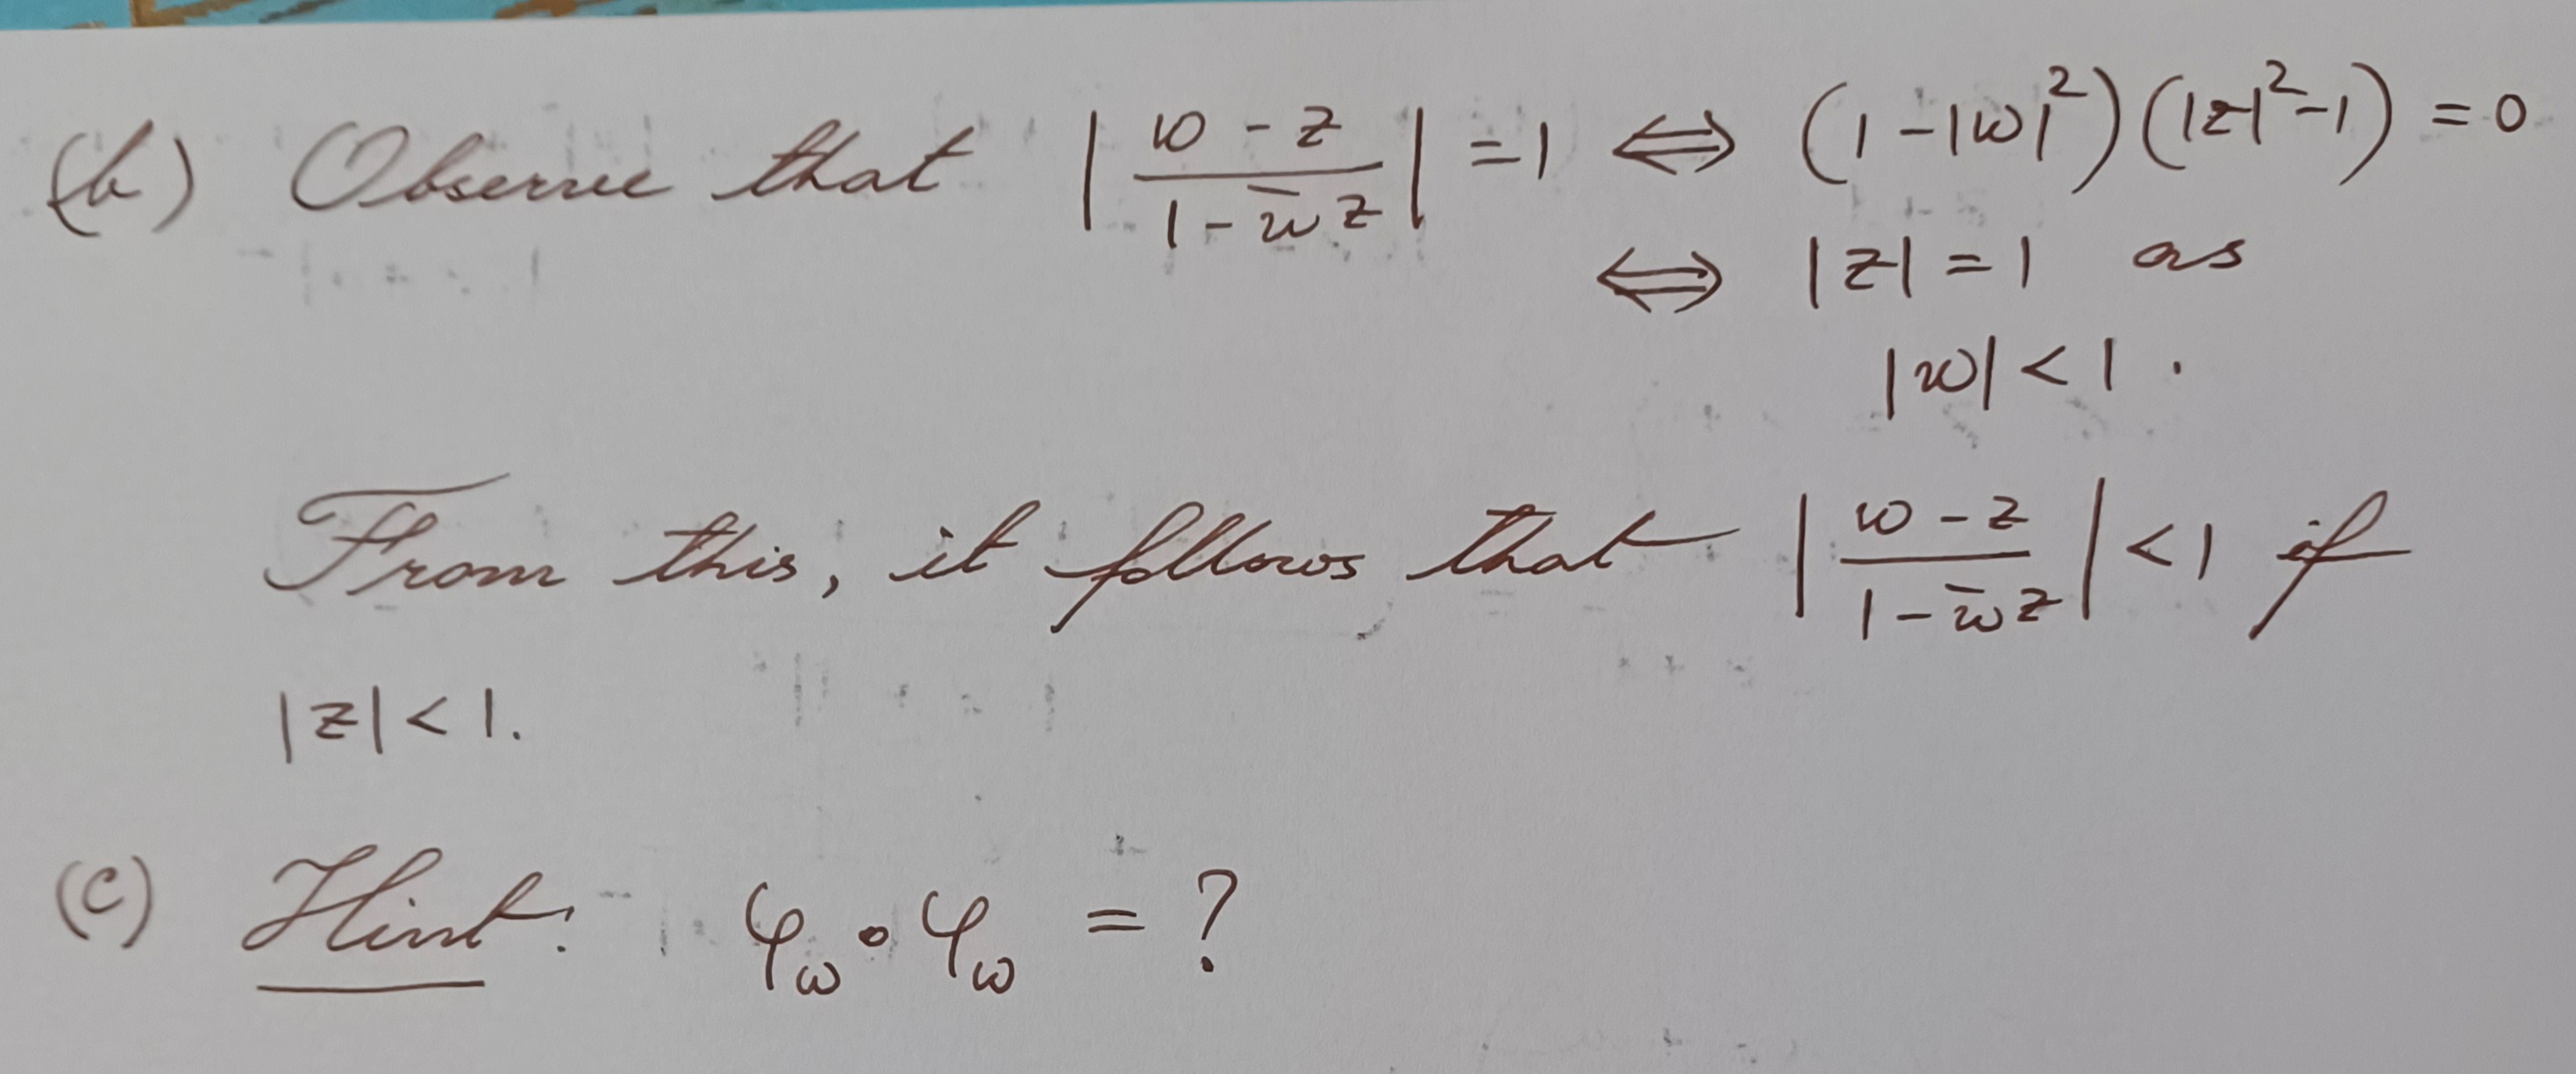 (b) Observe that |w - z / 1 - w̄ z| = 1 ⟺ (1 - |w|²)(|z|² - 1) = 0
⟺ |z| = 1 as
|w| < 1 .
From this, it follows that |w - z / 1 - w̄ z| < 1 if
|z| < 1.
(c) Hint: φ_w ∘ φ_w = ?